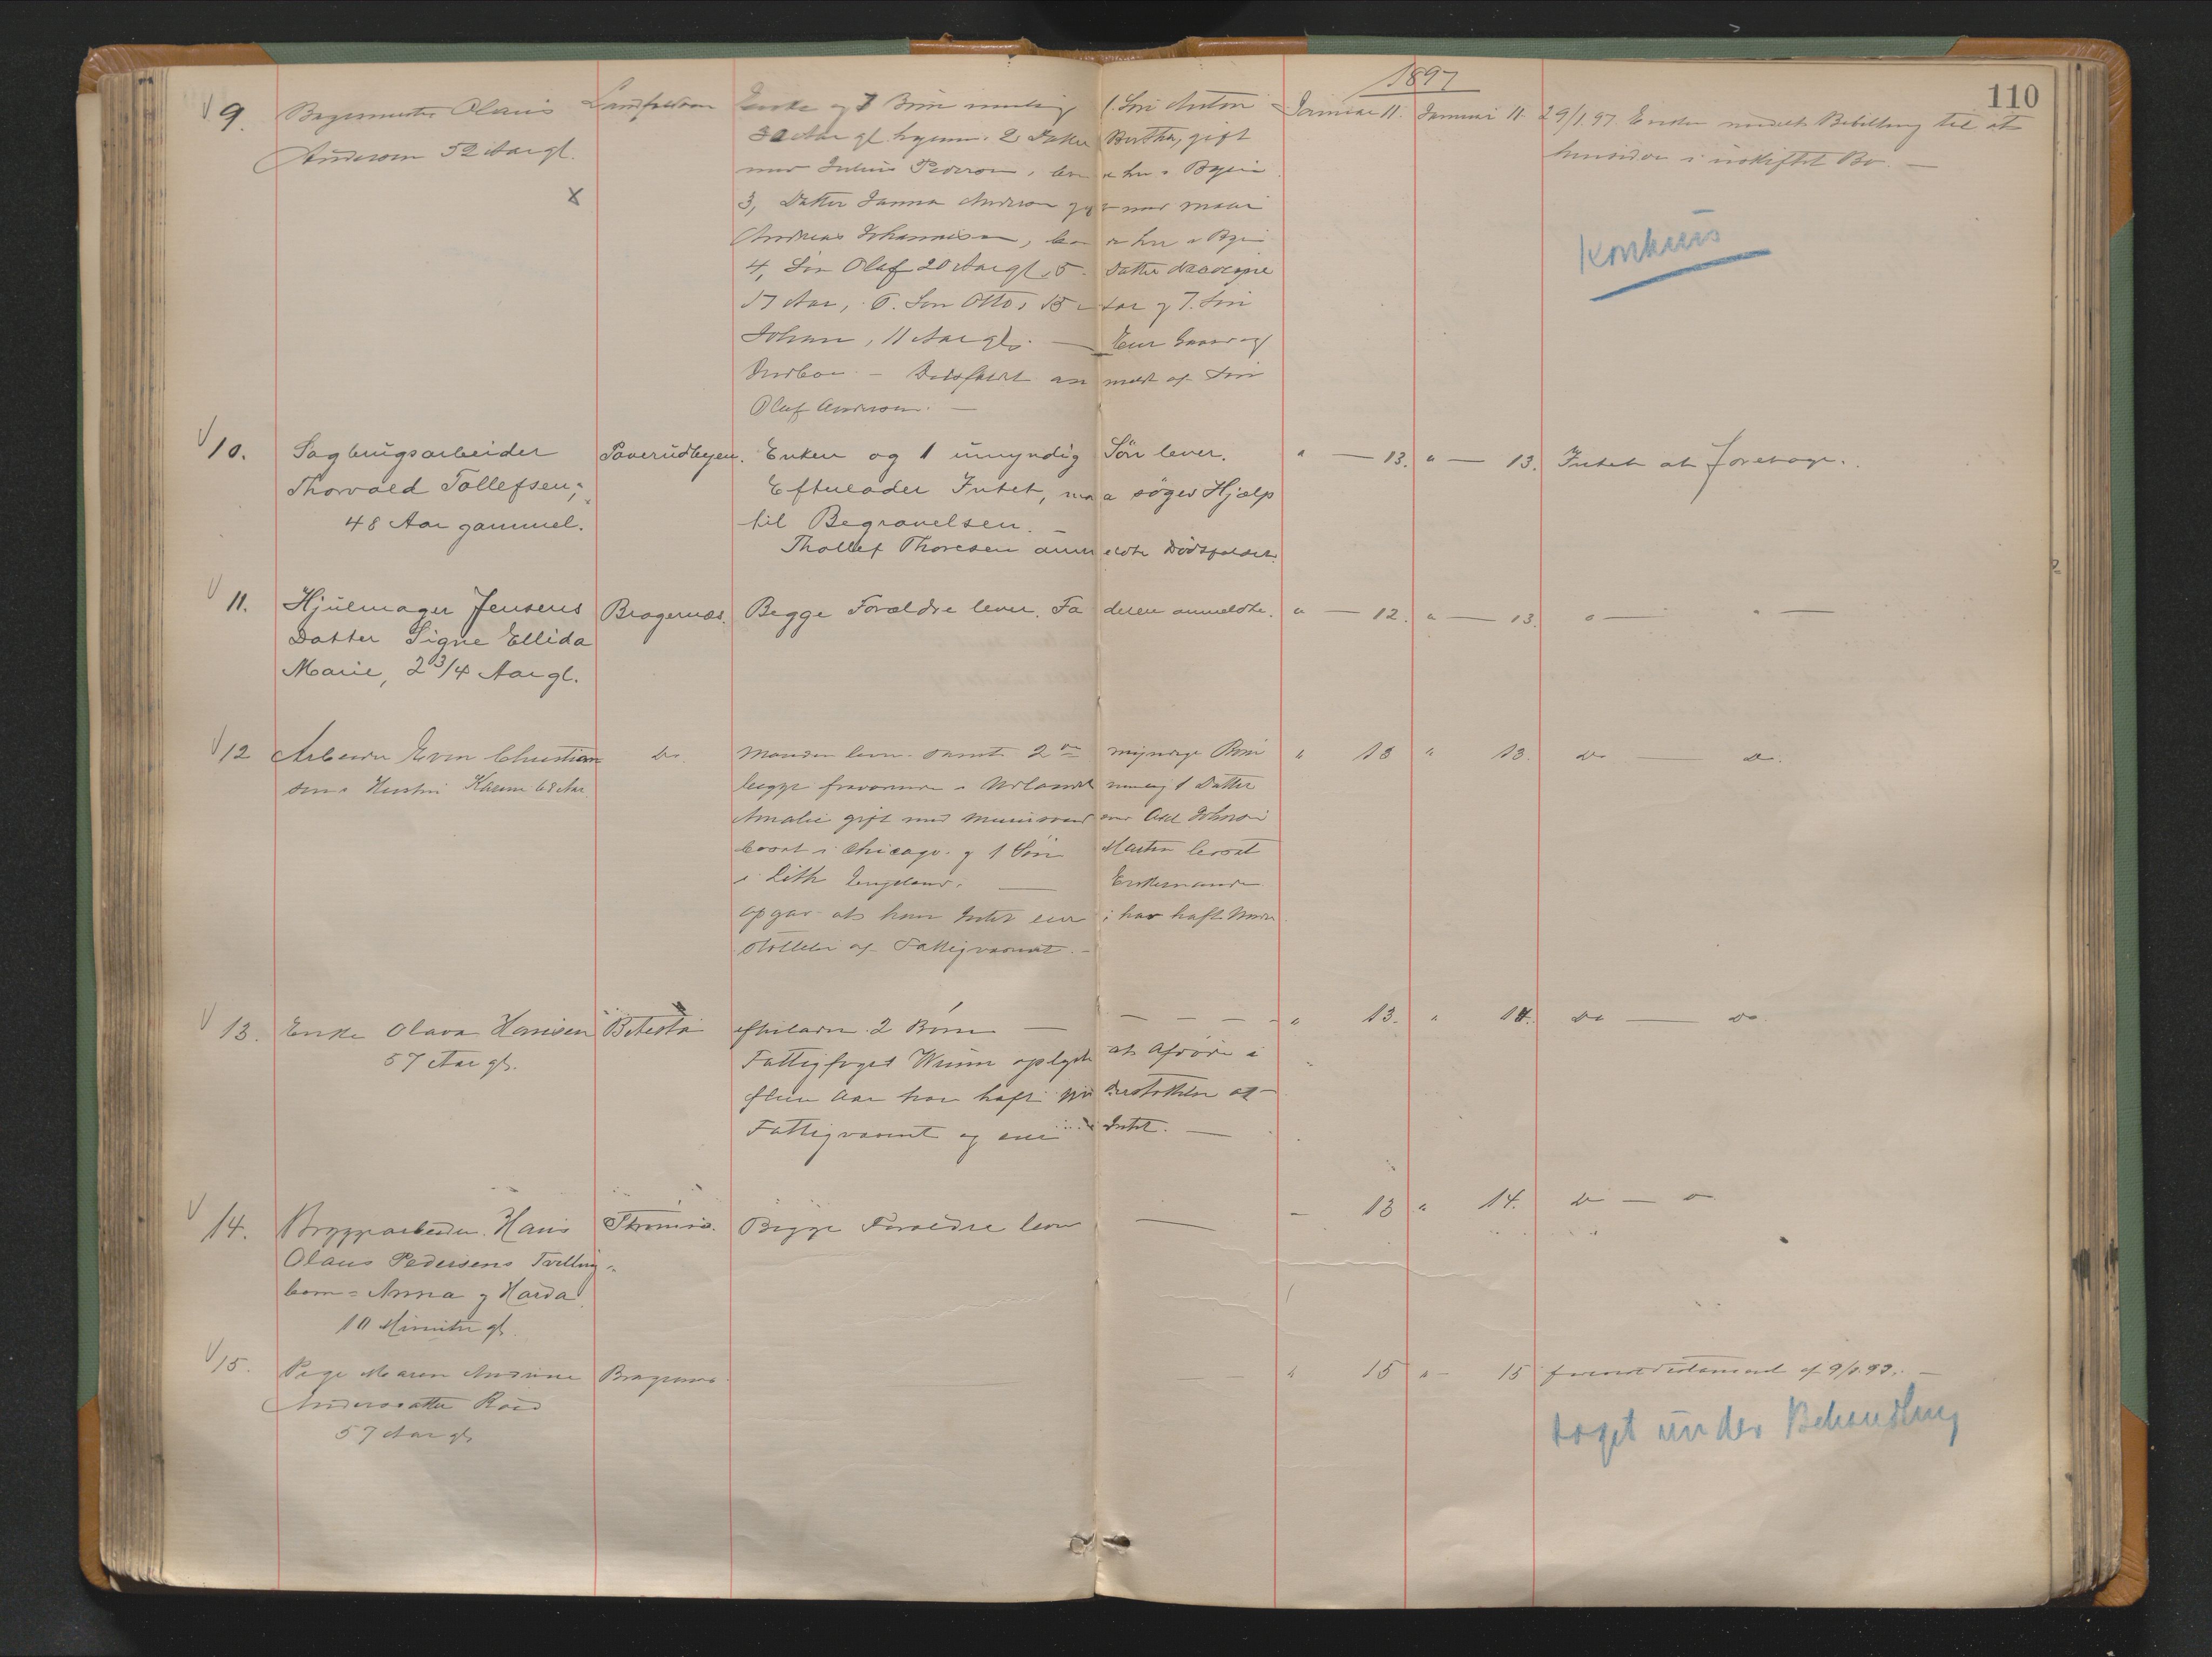 1897
110
9. Bagermester Olaus
Anderson 52 Aar gl.
Landfalløen
Enke og 7 Børn nemlig 1. Søn Anton
30 Aar gl. hjemme. 2, Datter Bertha, gift
med Julius Pederson, her i Byen
3, Datter Janna Anderson gift med
Andreas Johannesen, her i Byen
4, Søn Olaf 20 Aar gl, 5. Datter
17 Aar, 6. Søn Otto, 15 Aar og 7. Søn
Johan, 11 Aar gl. — Eier Gaard og
Indbo. — Dødsfaldet anmeldt af Søn
Olaf Anderson. —
Januar 11. Januar 11. 29/1 97. Enken meddelt Bevilling til at
hensidde i uskiftet Bo. —
Konkurs
10. Sagbrugsarbeider
Thorvald Tollefsen,
48 Aar gammel.
Paverudbyen.
Enken og 1 umyndig Søn lever.
Efterlader Intet, maa søges Hjælp
til Begravelsen. —
Thollef Thoresen anmeldte Dødsfaldet.
" — 13. " — 13. Intet at foretage.
11. Hjulmager Jensens
Datter Signe Ellida
Marie, 2 3/4 Aar gl.
Bragernæs.
Begge Forældre lever. Faderen anmeldte.
" — 12. " — 13. " — " —
12 Arbeider Even Christian
sens Hustru Karen 68 Aar
do.
Manden lever samt 2 myndige Børn
begge fraværende i Udlandet nemlig 1 Datter
Amalie gift med Axel Johnson
boat i Chicago og 1 Søn Martin boat
i Lith England. — Enkemanden
opgav at han Intet eier; har haft Under
støttelse af Fattigvæsenet. —
" 13 " 13. do — do.
13. Enke Olava Hansen
57 Aar gl.
Betesta
efterlader 2 Børn — — — — —
Fattigfoged Winm oplyste at Afdøde i
flere Aar har haft Understøttelse af
Fattigvæsenet og eier Intet. —
" 13. " 14. do — do.
14. Bryggearbeider Hans
Olaus Pedersens Tvilling-
børn = Anna og Harda
10 Minuter gl.
Strømsø.
Begge Forældre lever —
— 13 " 14. do — o
15. Pige Maren Andrine
Andersdatter Röed
57 Aar gl.
Bragernæs
— — " 15 " — 15 Testament af 9/8.93. —
taget under Behandling